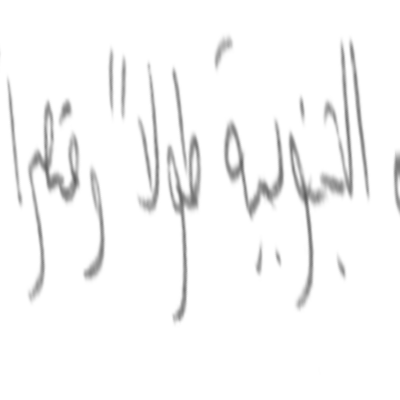 الجنوبية طولاً وقصراً